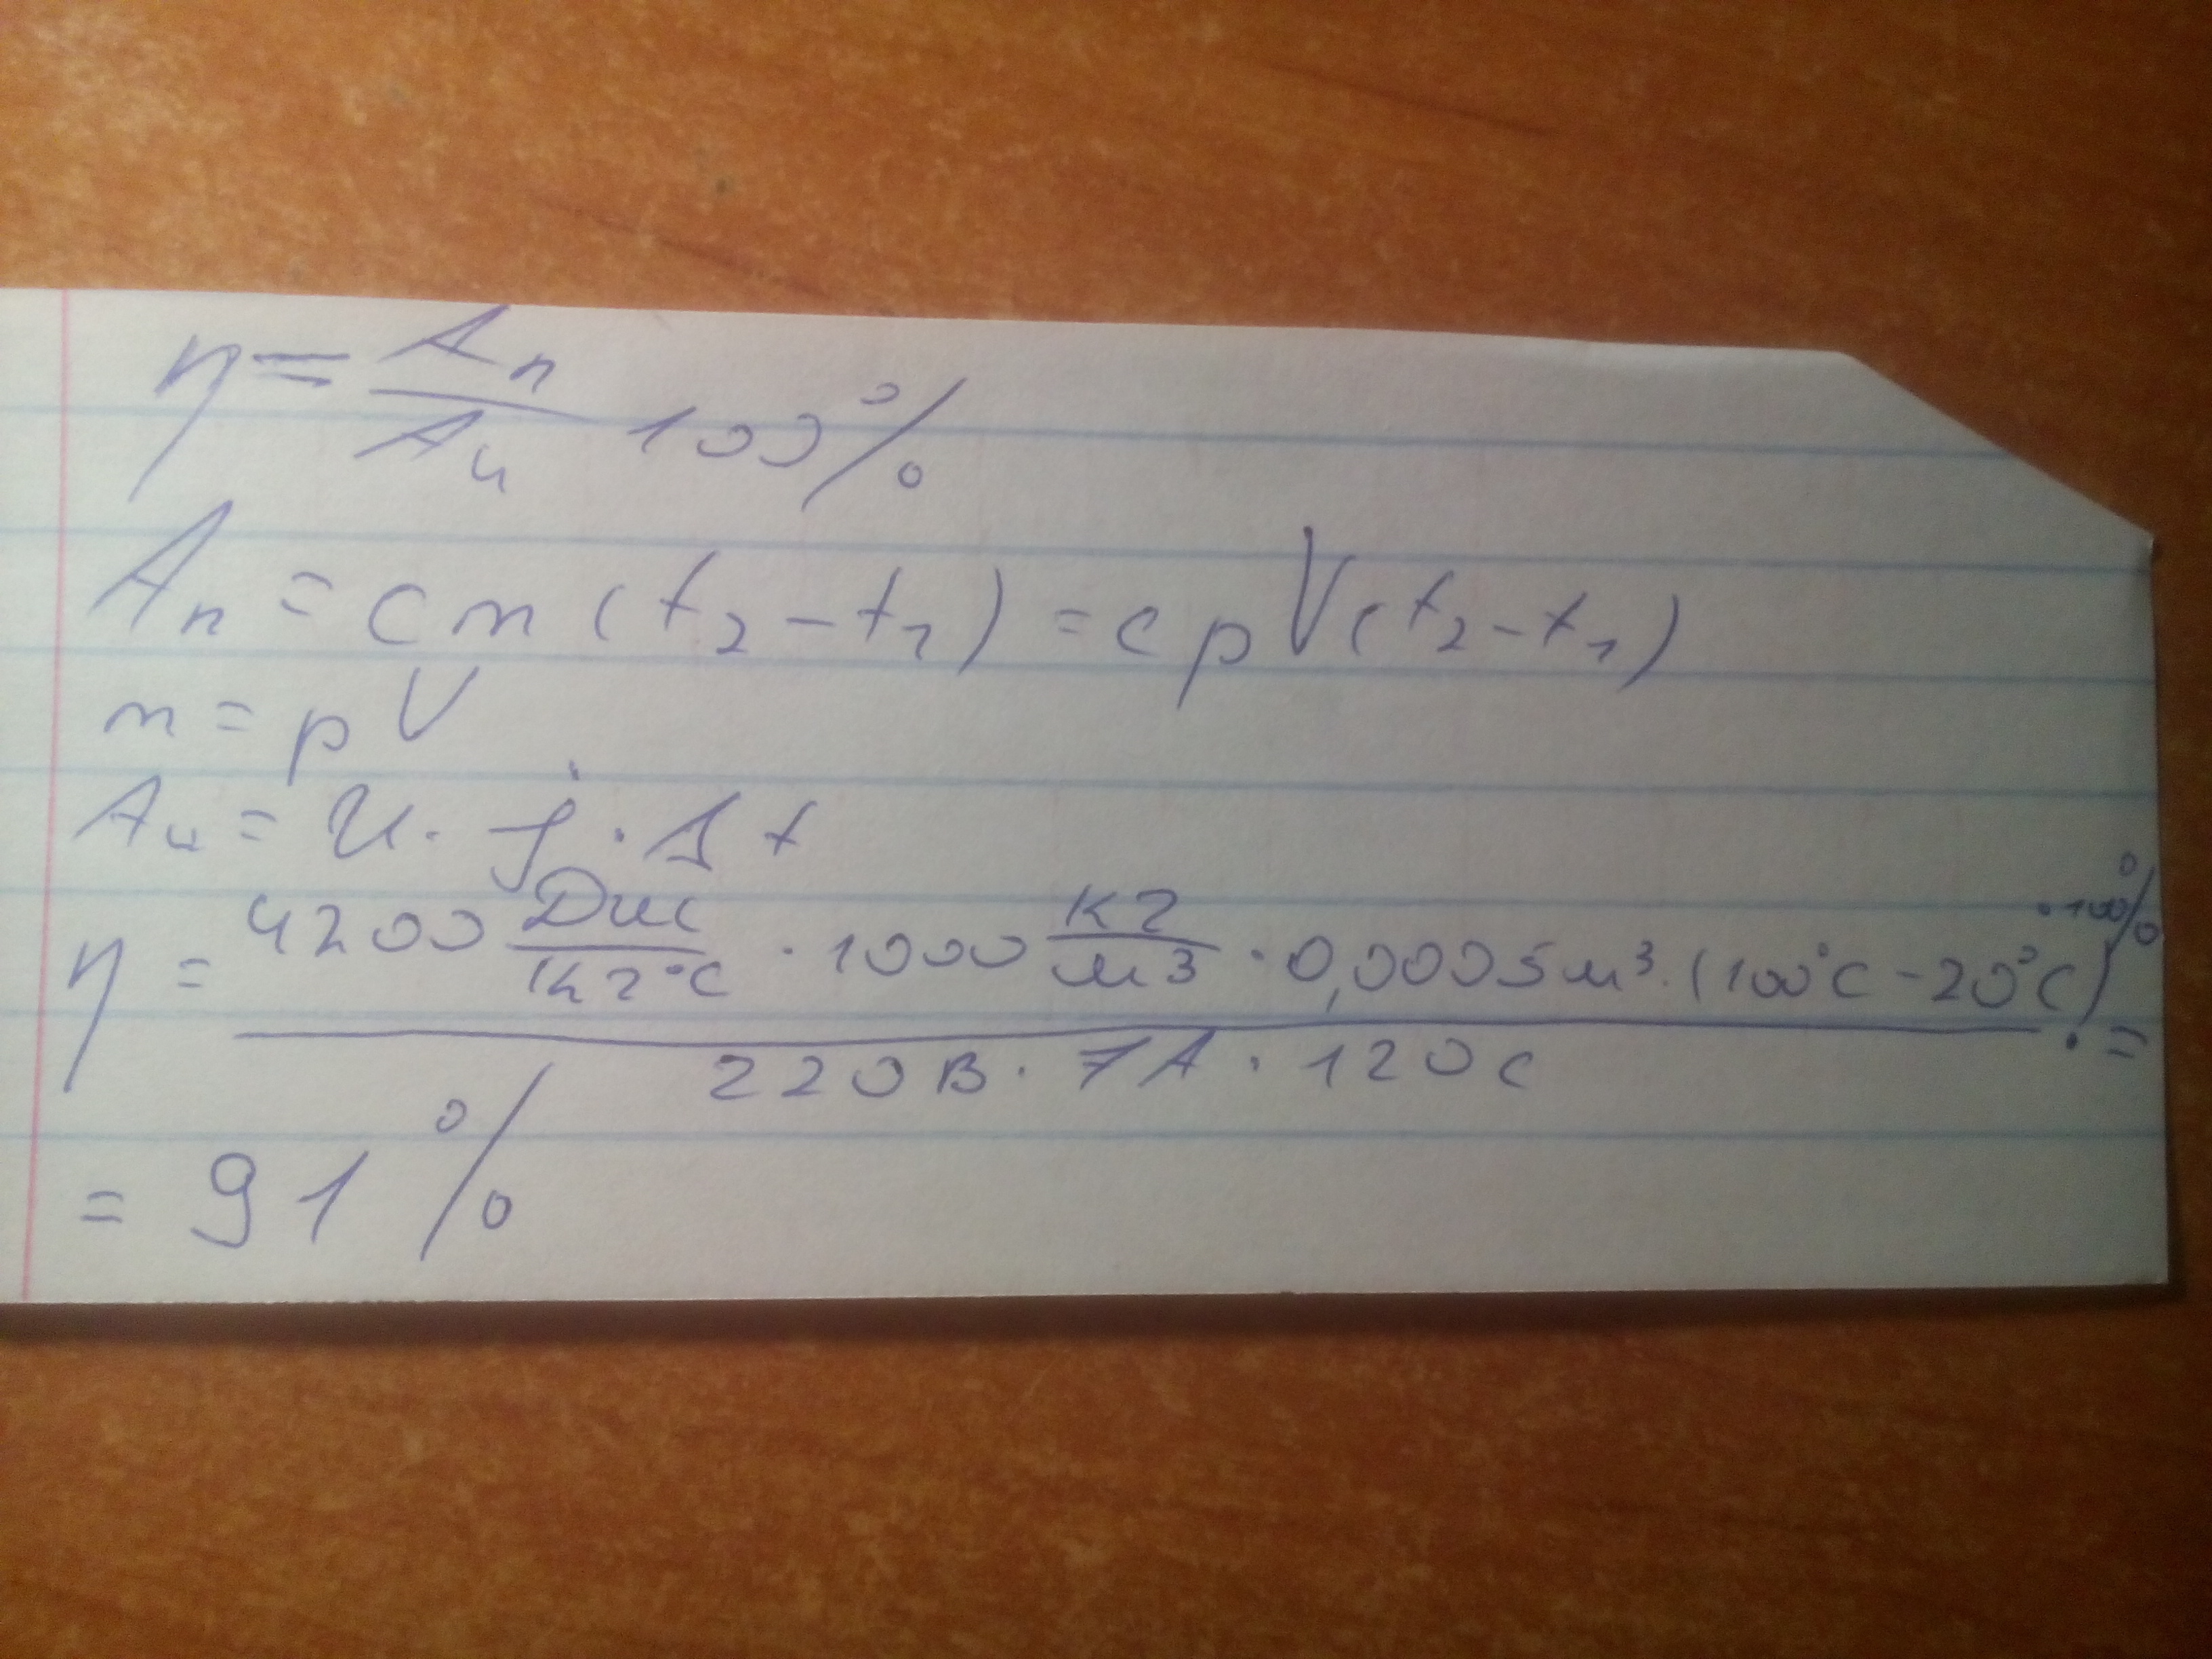 η = Aп/Aи 100%
Aп = cm(t₂-t₁) = cρV(t₂-t₁)
m = ρV
Aи = U · j · Δt
η = 4200 Дж/кг°C · 1000 кг/м³ · 0,0005 м³ · (100°C - 20°C) / 220В · 7А · 120с · 100% =
= 91%